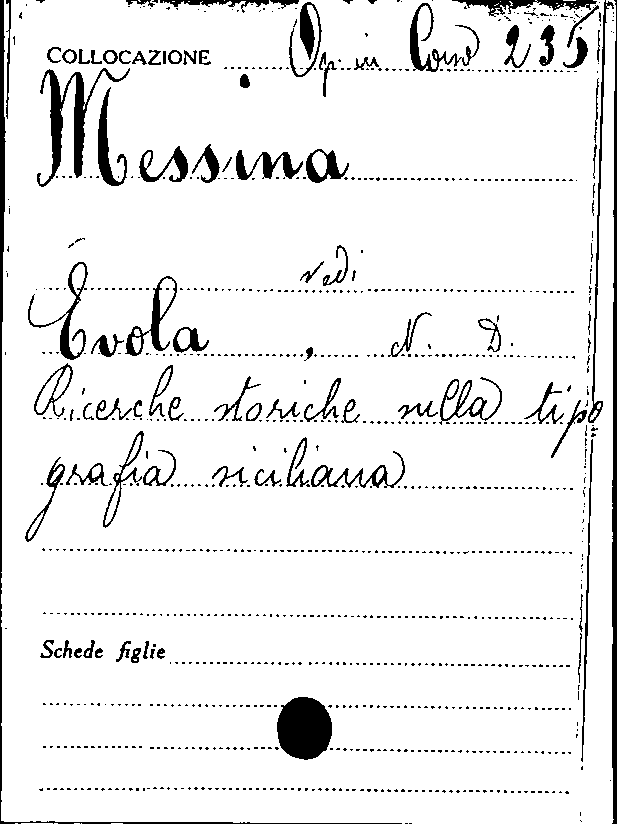 COLLOCAZIONE Op. in Cons 235
Messina
vedi
Evola, N. D.
Ricerche storiche sulla tipo=
grafia siciliana
Schede figlie